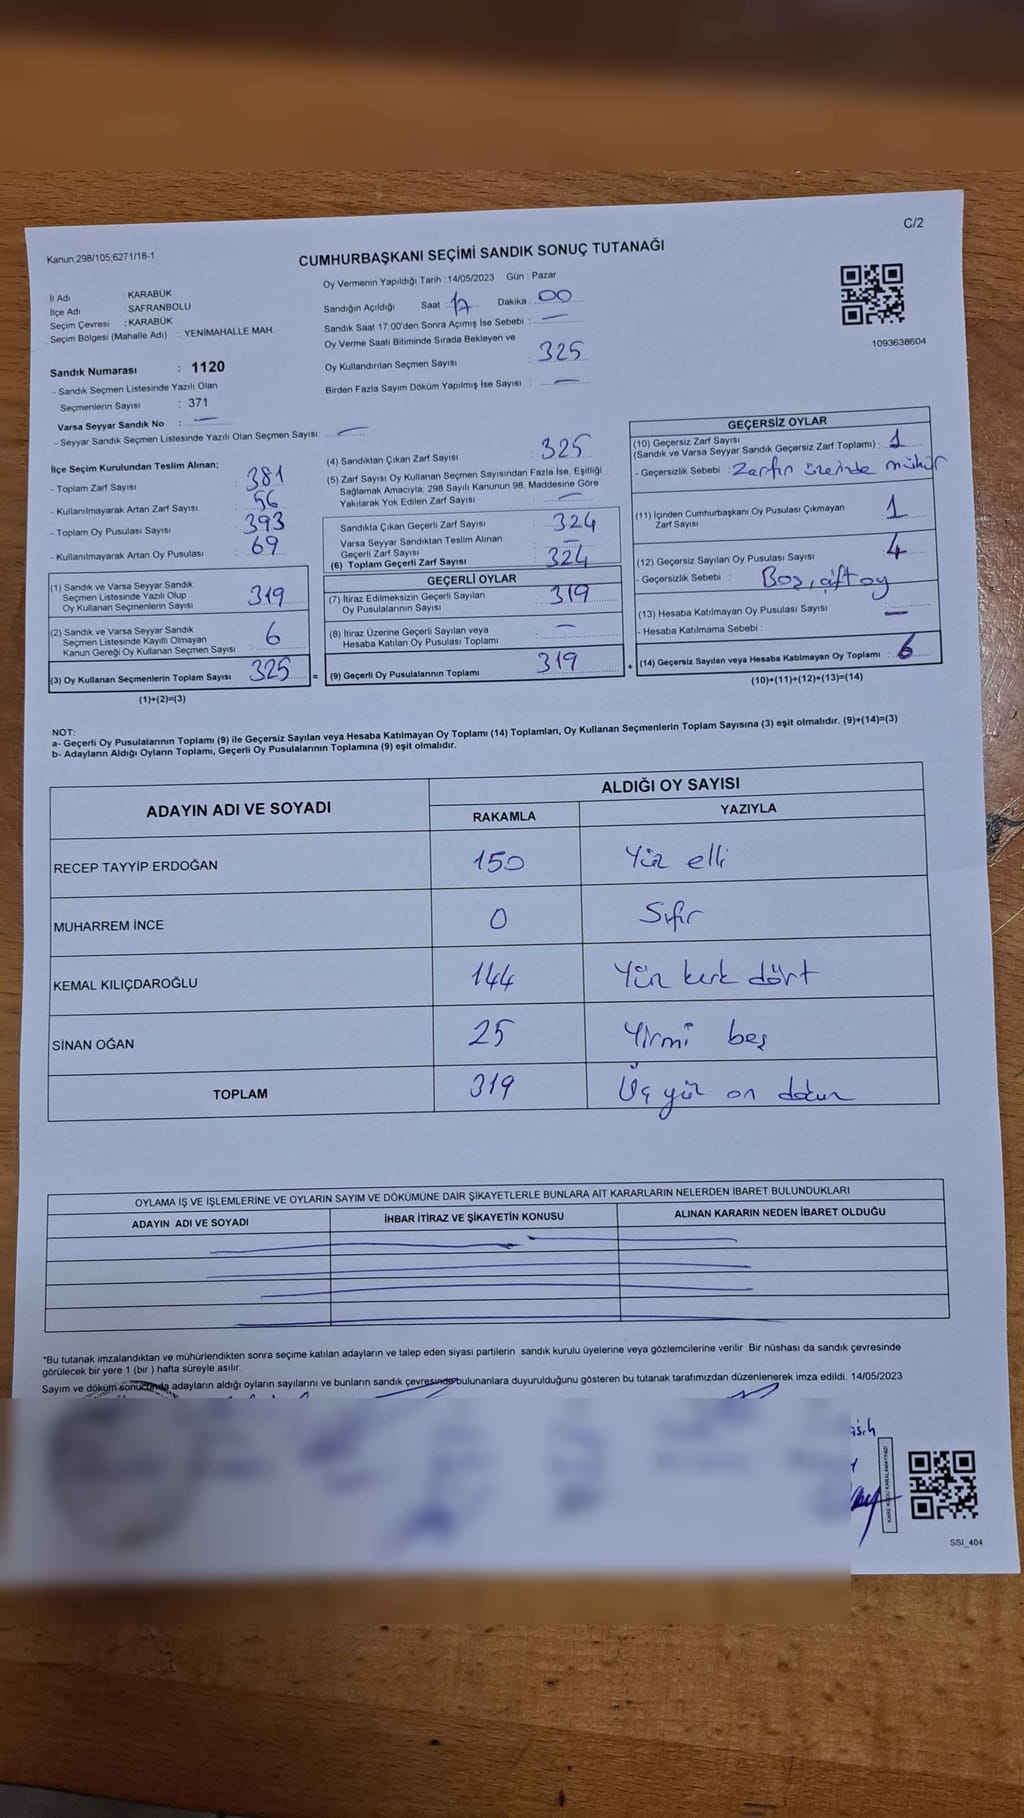 C/2
Kanun,298/105;6271/18-1
CUMHURBAŞKANI SEÇİMİ SANDIK SONUÇ TUTANAĞI
İl Adı : KARABÜK
İlçe Adı : SAFRANBOLU
Seçim Çevresi : KARABÜK
Seçim Bölgesi (Mahalle Adı) : YENİMAHALLE MAH.
Sandık Numarası : 1120
- Sandık Seçmen Listesinde Yazılı Olan
Seçmenlerin Sayısı : 371
Varsa Seyyar Sandık No : —
- Seyyar Sandık Seçmen Listesinde Yazılı Olan Seçmen Sayısı: —
Oy Vermenin Yapıldığı Tarih : 14/05/2023 Gün : Pazar
Sandığın Açıldığı Saat : 17 Dakika : 00
Sandık Saat 17:00'den Sonra Açımış İse Sebebi : —
Oy Verme Saati Bitiminde Sırada Bekleyen ve
Oy Kullandırılan Seçmen Sayısı : 325
Birden Fazla Sayım Döküm Yapılmış İse Sayısı : —
1093638604
İlçe Seçim Kurulundan Teslim Alınan;
- Toplam Zarf Sayısı : 381
- Kullanılmayarak Artan Zarf Sayısı : 56
- Toplam Oy Pusulası Sayısı : 393
- Kullanılmayarak Artan Oy Pusulası : 69
(1) Sandık ve Varsa Seyyar Sandık
Seçmen Listesinde Yazılı Olup
Oy Kullanan Seçmenlerin Sayısı : 319
(2) Sandık ve Varsa Seyyar Sandık
Seçmen Listesinde Kayıtlı Olmayan
Kanun Gereği Oy Kullanan Seçmen Sayısı : 6
(3) Oy Kullanan Seçmenlerin Toplam Sayısı : 325
(1)+(2)=(3)
(4) Sandıktan Çıkan Zarf Sayısı : 325
(5) Zarf Sayısı Oy Kullanan Seçmen Sayısından Fazla İse, Eşitliği
Sağlamak Amacıyla; 298 Sayılı Kanunun 98. Maddesine Göre
Yakılarak Yok Edilen Zarf Sayısı : —
Sandıkta Çıkan Geçerli Zarf Sayısı : 324
Varsa Seyyar Sandıktan Teslim Alınan
Geçerli Zarf Sayısı : —
(6) Toplam Geçerli Zarf Sayısı : 324
GEÇERLİ OYLAR
(7) İtiraz Edilmeksizin Geçerli Sayılan
Oy Pusulalarının Sayısı : 319
(8) İtiraz Üzerine Geçerli Sayılan veya
Hesaba Katılan Oy Pusulası Toplamı : —
= (9) Geçerli Oy Pusulalarının Toplamı : 319
GEÇERSİZ OYLAR
(10) Geçersiz Zarf Sayısı
(Sandık ve Varsa Seyyar Sandık Geçersiz Zarf Toplamı) : 1
- Geçersizlik Sebebi : Zarfın üzerinde mühür
(11) İçinden Cumhurbaşkanı Oy Pusulası Çıkmayan
Zarf Sayısı 1
(12) Geçersiz Sayılan Oy Pusulası Sayısı : 4
- Geçersizlik Sebebi : Boş, çift oy
(13) Hesaba Katılmayan Oy Pusulası Sayısı : —
- Hesaba Katılmama Sebebi :
+ (14) Geçersiz Sayılan veya Hesaba Katılmayan Oy Toplamı : 6
(10)+(11)+(12)+(13)=(14)
NOT:
a- Geçerli Oy Pusulalarının Toplamı (9) ile Geçersiz Sayılan veya Hesaba Katılmayan Oy Toplamı (14) Toplamları, Oy Kullanan Seçmenlerin Toplam Sayısına (3) eşit olmalıdır. (9)+(14)=(3)
b- Adayların Aldığı Oyların Toplamı, Geçerli Oy Pusulalarının Toplamına (9) eşit olmalıdır.
ADAYIN ADI VE SOYADI
ALDIĞI OY SAYISI
RAKAMLA YAZIYLA
RECEP TAYYİP ERDOĞAN 150 Yüz elli
MUHARREM İNCE 0 Sıfır
KEMAL KILIÇDAROĞLU 144 Yüz kırk dört
SİNAN OĞAN 25 Yirmi beş
TOPLAM 319 Üç yüz on dokuz
OYLAMA İŞ VE İŞLEMLERİNE VE OYLARIN SAYIM VE DÖKÜMÜNE DAİR ŞİKAYETLERLE BUNLARA AİT KARARLARIN NELERDEN İBARET BULUNDUKLARI
ADAYIN ADI VE SOYADI İHBAR İTİRAZ VE ŞİKAYETİN KONUSU ALINAN KARARIN NEDEN İBARET OLDUĞU
*Bu tutanak imzalandıktan ve mühürlendikten sonra seçime katılan adayların ve talep eden siyasi partilerin sandık kurulu üyelerine veya gözlemcilerine verilir .Bir nüshası da sandık çevresinde
görülecek bir yere 1 (bir ) hafta süreyle asılır.
Sayım ve döküm sonucunda adayların aldığı oyların sayılarını ve bunların sandık çevresinde bulunanlara duyurulduğunu gösteren bu tutanak tarafımızdan düzenlenerek imza edildi. 14/05/2023
KARE KODU KARALAMAYINIZ!
SSI_404